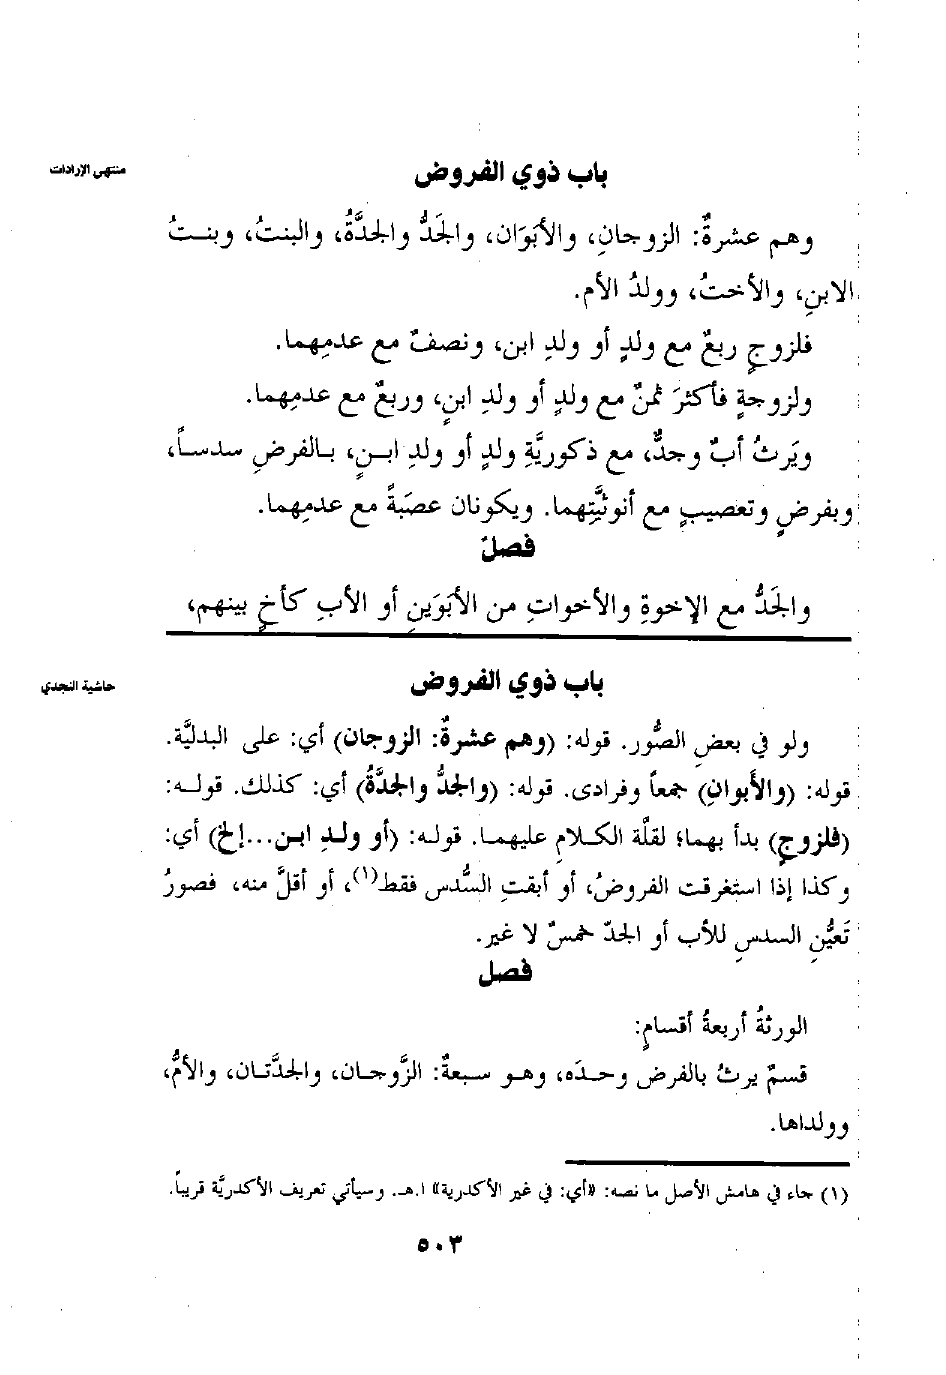 منتهى الإرادات
باب ذوي الفروض
وهم عشرةٌ: الزوجانِ، والأبَوَان، والجَدُّ والجدَّةُ، والبنتُ، وبنتُ
الابنِ، والأختُ، وولدُ الأم.
فلزوجٍ ربعٌ مع ولدٍ أو ولدِ ابن، ونصفٌ مع عدمِهما.
ولزوجةٍ فأكثرَ ثمنٌ مع ولدٍ أو ولدِ ابنٍ، وربعٌ مع عدمِهما.
ويَرثُ أبٌ وجدٌّ، مع ذكوريَّةِ ولدٍ أو ولدِ ابنٍ، بالفرضِ سدساً،
وبفرضٍ وتعصيبٍ مع أنوثيَّتِهما. ويكونان عصَبَةً مع عدمِهما.
فصلٌ
والجَدُّ مع الإخوةِ والأخواتِ من الأبَوَينِ أو الأبِ كأخٍ بينهم،
حاشية النجدي
باب ذوي الفروض
ولو في بعضِ الصُّور. قوله: (وهم عشرةٌ: الزوجان) أي: على البدليَّة.
قوله: (والأَبوانِ) جمعاً وفرادى. قوله: (والجدُّ والجدَّةُ) أي: كذلك. قوله:
(فلزوجٍ) بدأ بهما؛ لقلَّة الكلامِ عليهما. قوله: (أو ولدِ ابن...إلخ) أي:
وكذا إذا استغرقت الفروضُ، أو أبقتِ السُّدس فقط(١)، أو أقلَّ منه، فصورُ
تَعيُّنِ السدسِ للأب أو الجدّ خمسٌ لا غير.
فصل
الورثةُ أربعةُ أقسامٍ:
قسمٌ يرثُ بالفرض وحدَه، وهو سبعةٌ: الزَّوجان، والجدَّتان، والأمُّ،
وولداها.
(١) جاء في هامش الأصل ما نصه: «أي: في غير الأكدرية» ا.هـ. وسيأتي تعريف الأكدريَّة قريباً.
٥٠٣